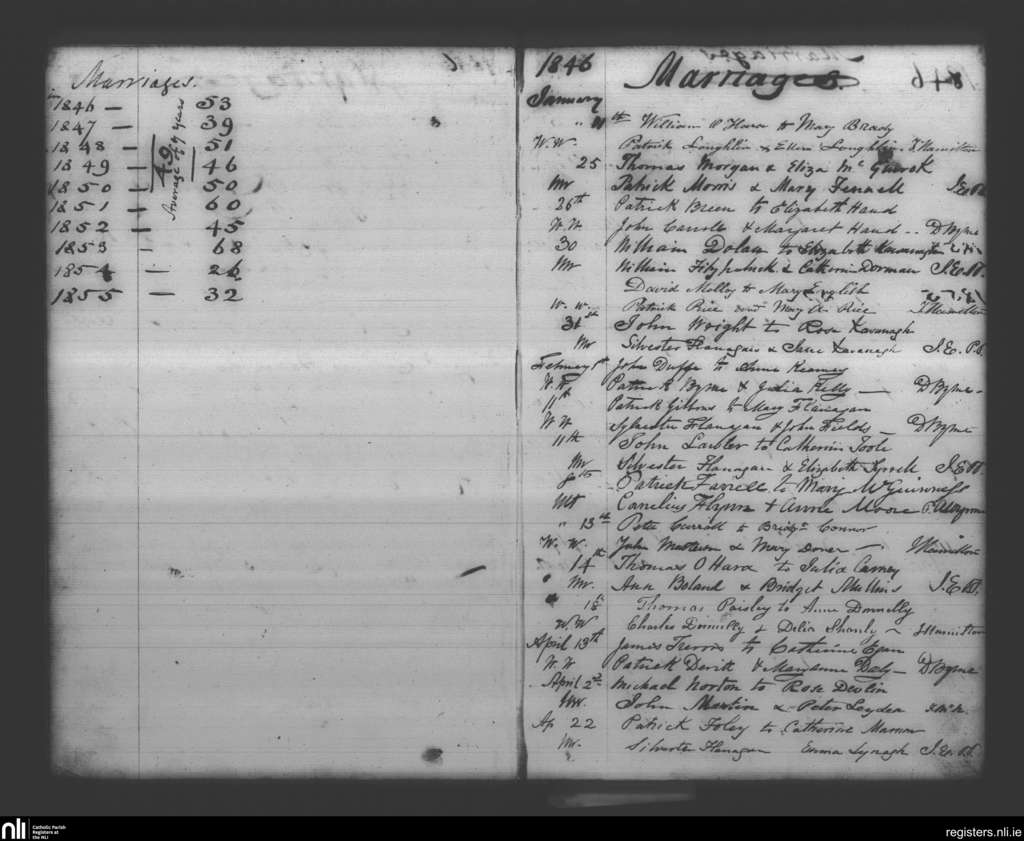 Marriages.
1846 — 53
1847 — 39
1848 — 51
1849 — 46
1850 — 50
1851 — 60
1852 — 45
1853 " 68
1854 " 26
1855 — 32
49
Average of 7 years
1846 Marriages.
January
" 11th William O'Hara to Mary Brady
W.W. Patrick Loughlin & Ellen Loughlin J Hamilton
25 Thomas Morgan & Eliza Mc
Mr Patrick Morris & Mary Fennell
26th Patrick Breen to Elizabeth Hand
W.W John Carroll & Margaret Hand -- D Byrne
30 William Dolan to Elizabeth
Mr William Fitzpatrick & Catherin Dorman
David Molloy to Mary English
W. W. Patrick Rice Mary A. Rice J Hamilton
31st John Wright to Rose Kavanagh
Mr Silvester Flanagan & Jane Kavanagh J.E.
February 1st John Duffe to Anne Kearney
W.W Patrick Byrne & Julia Kelly — D Byrne -
11th Patrick Gibbons to Mary Flanagan
W W Sylvester Flanagan & John Fields — D Byrne
11th John Lawler to Catherin Toole
Mr Silvester Flanagan & Elizabeth
8th Patrick Farrell to Mary McGuinness
Wt Cornelius Flynn & Anne Moore
" 13th Peter Curran to Bridgt Connor
W. W. John & Mary — J Hamilton
14th Thomas O Hara to Julia Carney
Mr. Ann Boland & Bridget Mullins J.E
18th Thomas Paisley to Anne Donnelly
W W Charles Donnelly & Delia Shanly — J Hamilton
April 13th James to Catherine Egan
W. W Patrick Devitt & Maryanne Daly — D Byrne
April 2nd Michael Norton to Rose Devlin
John Martin & Peter Leyden
Ap 22 Patrick Foley to Catherine
Mr. Silvester Flanagan Emma Lynagh J.E.
nli
Catholic Parish
Registers at
the NLI
registers.nli.ie